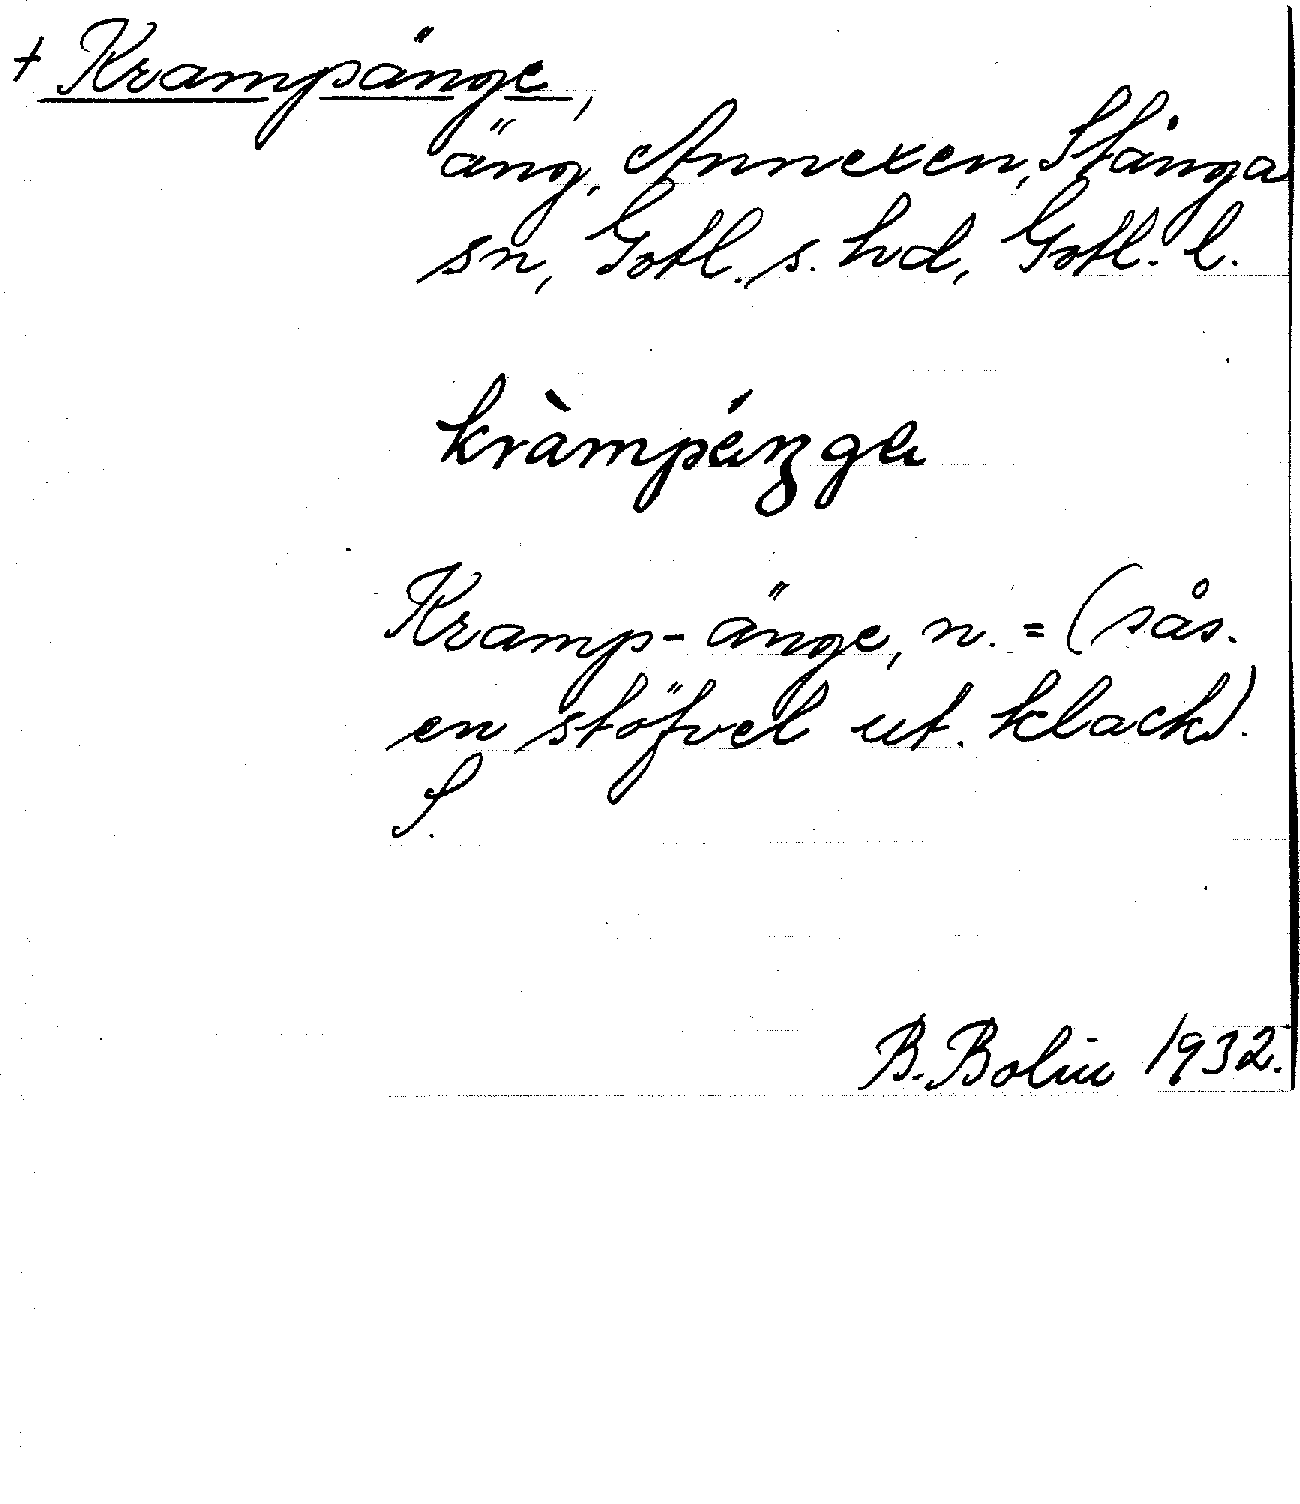 + Krampänge,
äng, Annexen, Stånga
sn, Gotl. s. hd, Gotl. l.
kràmpáŋga
Kramp-änge, n. = (sås.
en stöfvel ut. klack).
S.
B. Bolin 1932.